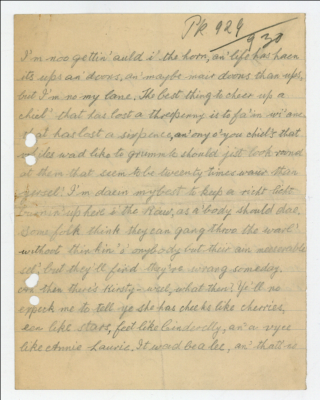 Pk 929/930
I'm noo gettin' auld i' the horn, an' life has haen
its ups an' doons, an' maybe mair doons than ups,
but I'm no my lane. The best thing to cheer up a
chiel' that has lost a thrupenny is to fa' in wi' ane
that has lost a sixpence, an' ony o' you chiels that
whiles wad like to grummle should jist look roond
at them that seem to be twenty times waur than
yersel'! I'm daein my best to keep a richt licht
up here i' the Row, as a' body should dae.
Some folk think they can gang throo the warl'
without thinkin' o' onybody but their ain miserable
sel', but they'll find they're wrong someday.
An then there's Kirsty - weel, what then? Ye'll no
expeck me to tell ye she has cheeks like cherries,
een like stars, feet like Cinderelly, an' a vyce
like Annie Laurie. It wad be a lee, an' that's no